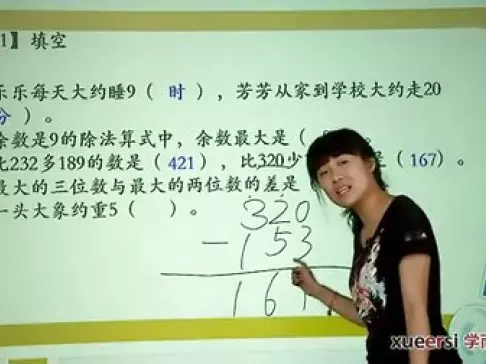 1】填空
乐乐每天大约睡9（ 时 ），芳芳从家到学校大约走20
分 ）。
余数是9的除法算式中，余数最大是（
比232多189的数是（421），比320少 是（167）。
最大的三位数与最大的两位数的差是
一头大象约重5（ ）。
320
－153
167
xueersi 学而